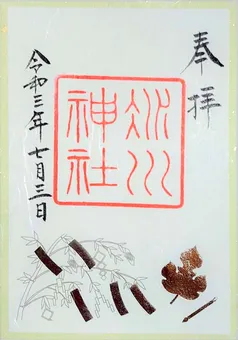 奉拝
氷川
神社
令和三年七月三日